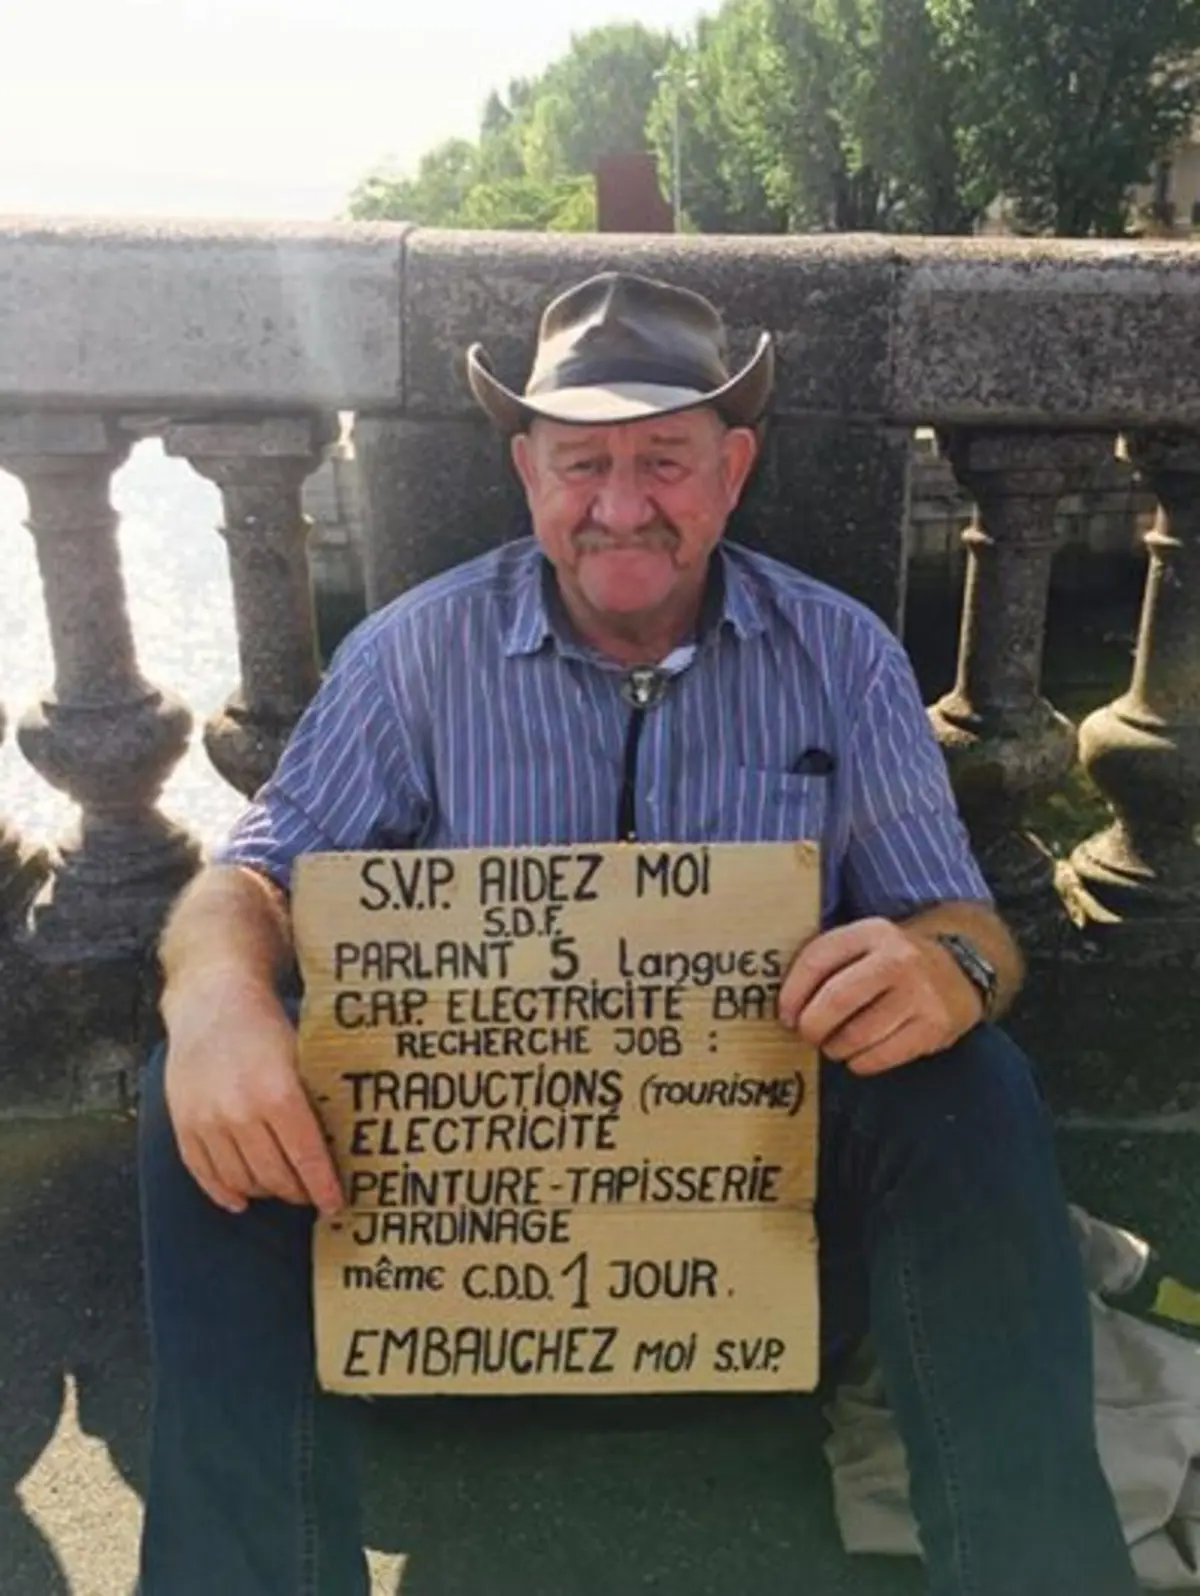 S.V.P. AIDEZ MOI
S.D.F.
PARLANT 5 langues
C.A.P. ELECTRICITÉ BAT
RECHERCHE JOB :
- TRADUCTIONS (TOURISME)
- ELECTRICITÉ
PEINTURE-TAPISSERIE
- JARDINAGE
même C.D.D. 1 JOUR.
EMBAUCHEZ MOI S.V.P.